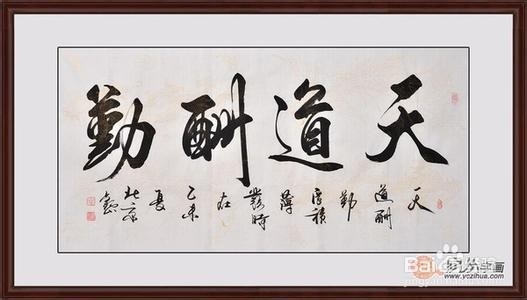 天道酬勤
天
道酬
勤
厚積
薄
發時
在
乙未
夏
北京
www.yczihua.com